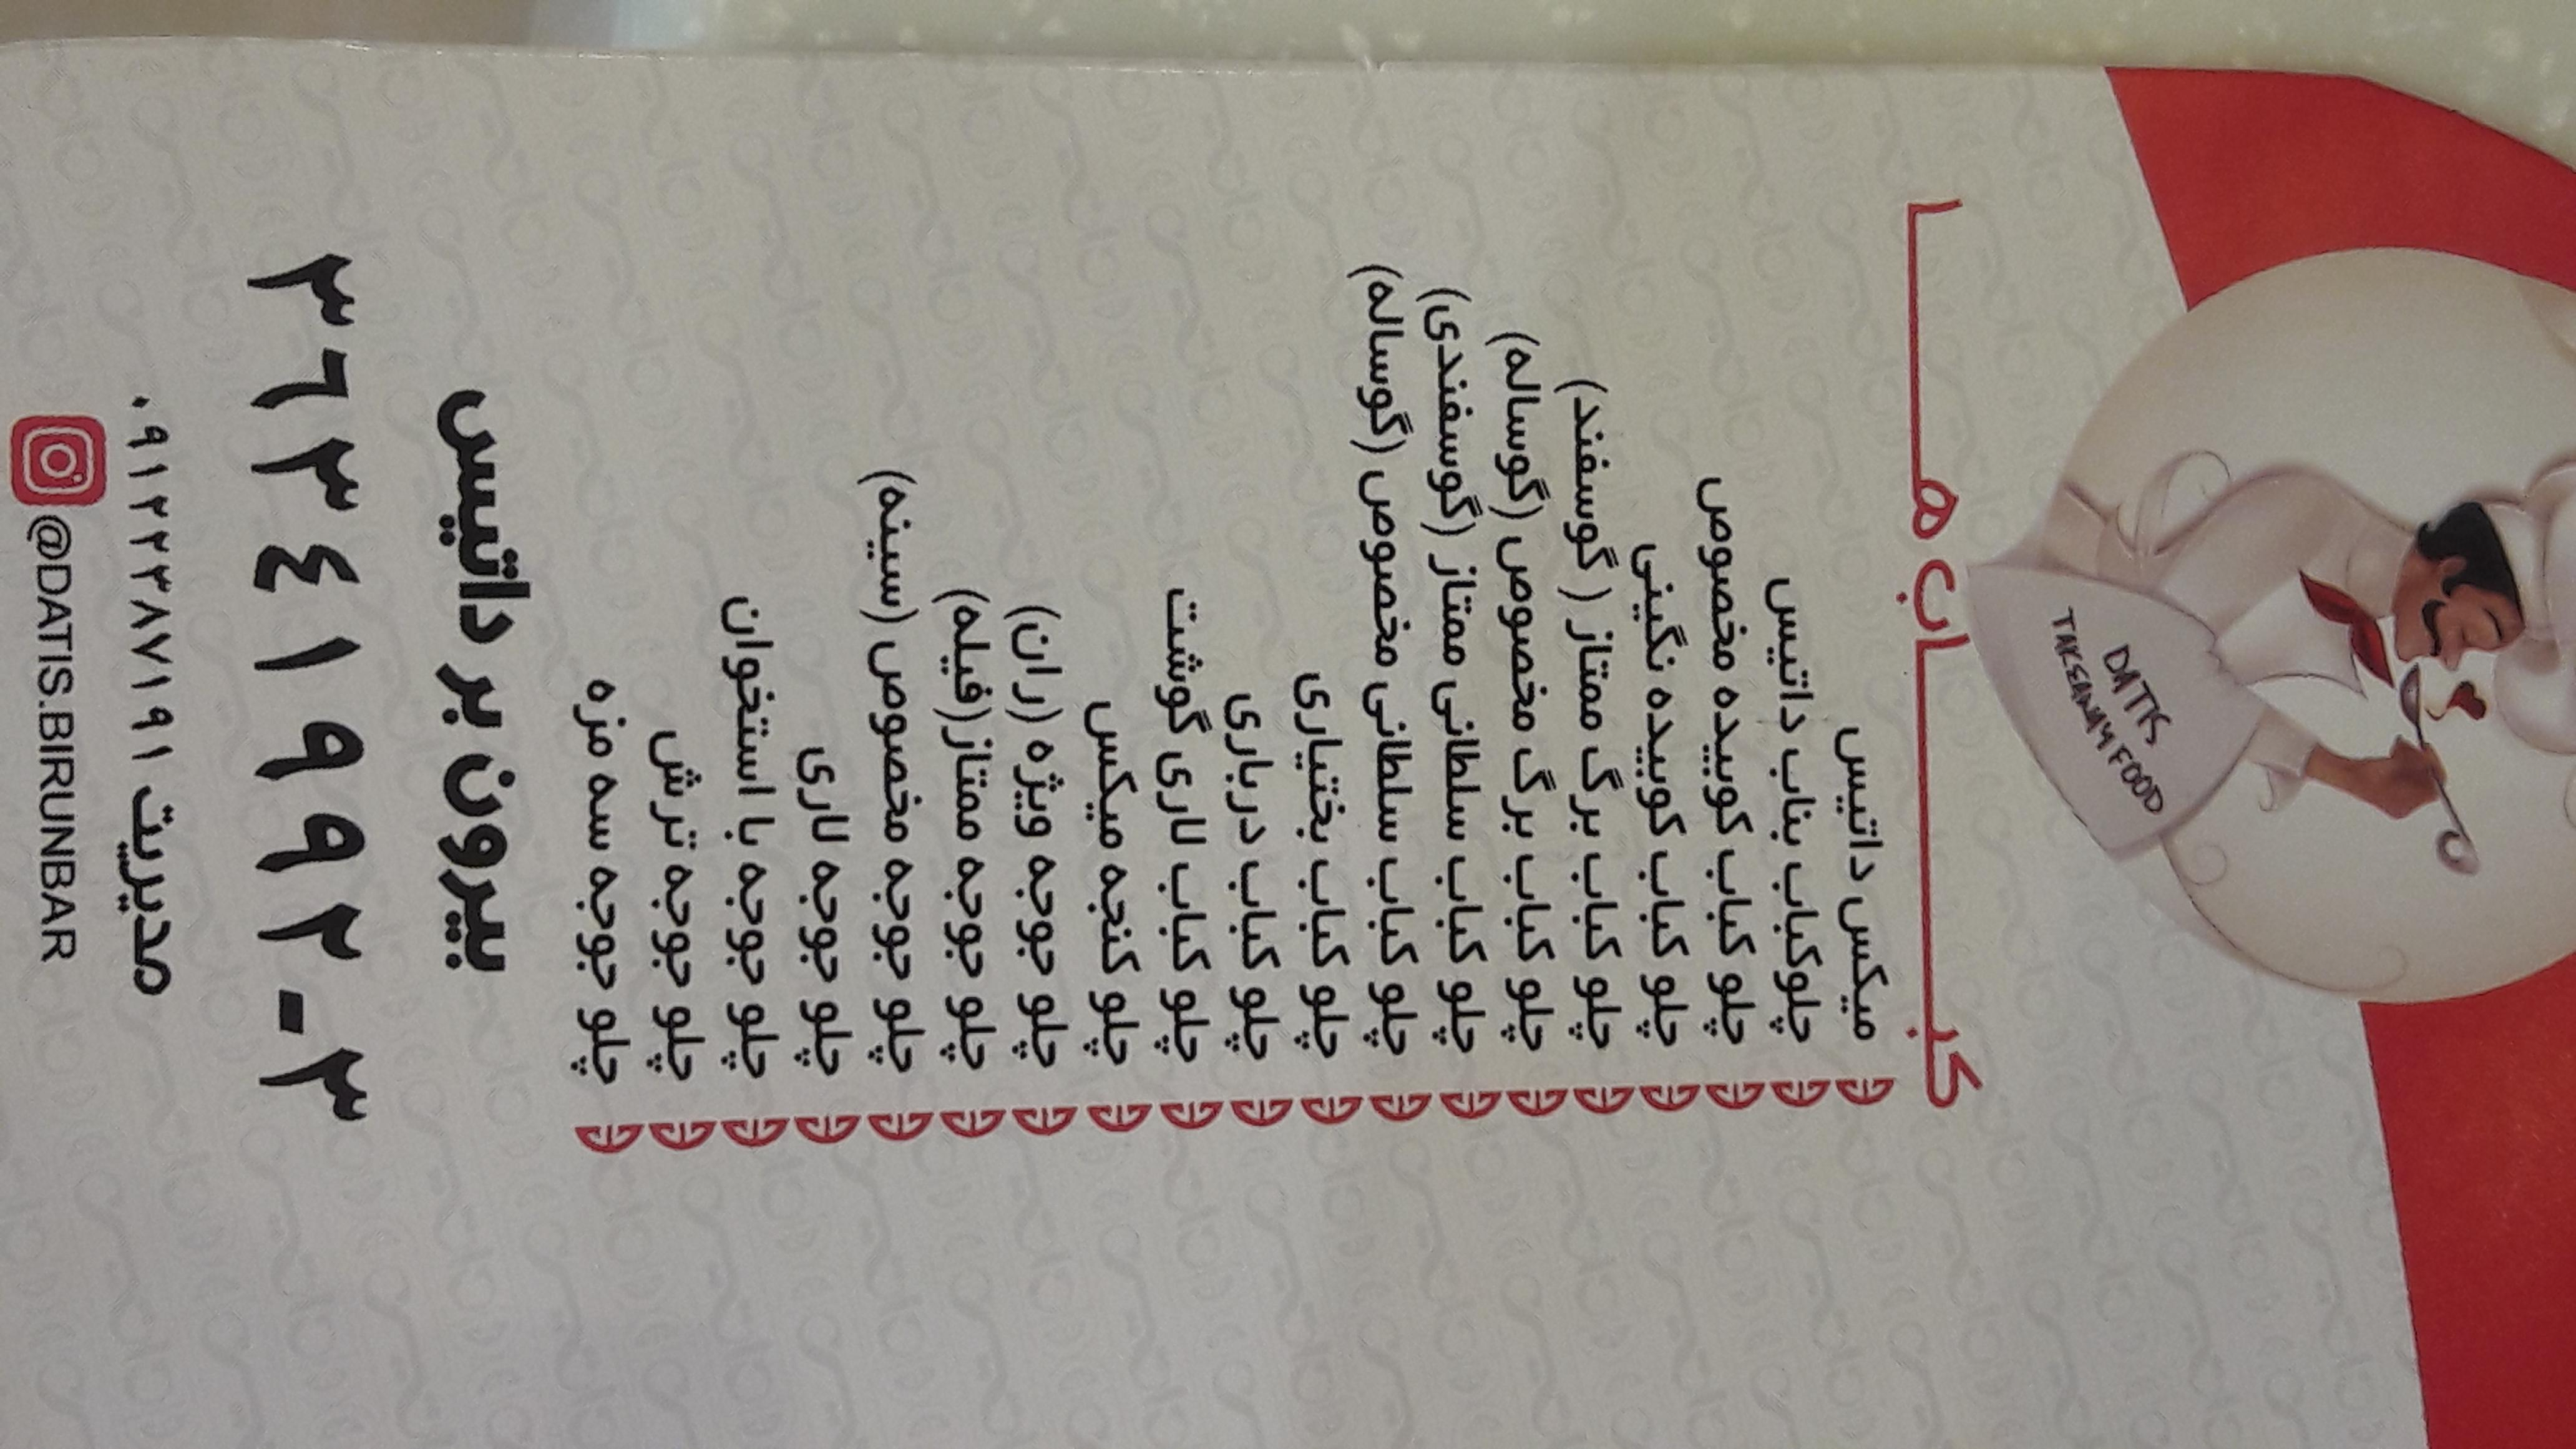 DATIS
TAKSANAY FOOD
کبـــاب هـــا
میکس داتیس
چلوکباب بناب داتیس
چلو کباب کوبیده مخصوص
چلو کباب کوبیده نگینی
چلو کباب برگ ممتاز ( گوسفند)
چلو کباب برگ مخصوص (گوساله)
چلو کباب سلطانی ممتاز (گوسفندی)
چلو کباب سلطانی مخصوص (گوساله)
چلو کباب بختیاری
چلو کباب درباری
چلو کباب لاری گوشت
چلو کنجه میکس
چلو جوجه ویژه (ران)
چلو جوجه ممتاز(فیله)
چلو جوجه مخصوص (سینه)
چلو جوجه لاری
چلو جوجه با استخوان
چلو جوجه ترش
چلو جوجه سه مزه
بیرون بر داتیس
۳٦۳٤۱۹۹۲-۳
مدیریت ۰۹۱۲۲۳۸۷۱۹۱
@DATIS.BIRUNBAR